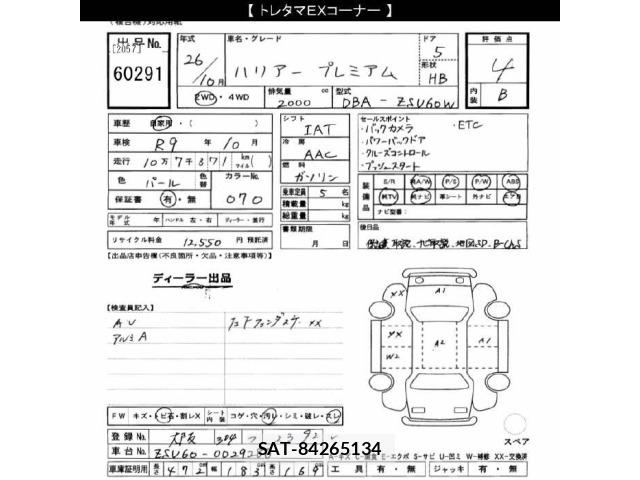 【 トレタマEXコーナー 】
出品No.
[2057]
60291
年式
26/10月
車名・グレード
ハリアー プレミアム
ドア
5
形状
HB
評価点
4
内装
B
2WD・4WD
排気量
2000 cc
型式
DBA - ZSU60W
車歴 自家用・( )
車検 R9 年 10 月
走行 10万7千871 km マイル ( )
色 パール 色替
カラーNo. 070
保証書 有・無
シフト
IAT
冷房
AAC
燃料
ガソリン
乗車定員 5 名
積載量 kg
総重量 kg
セールスポイント
・バックカメラ
・ETC
・パワーバックドア
・クルーズコントロール
・プッシュスタート
装備品
S/R 純A/W P/S P/W ABS
純TV 純ナビ 革シート 外ナビ エアB
ナビ型番:
モデル年式 年 ハンドル 左・右 ディーラー・並行
リサイクル料金 12,550 円 預託済
書類期限
月 日
後日品
【出品店申告欄(不良箇所・欠品・注意事項等)】
ディーラー出品
【検査員記入】
AU
アルミA
XX
XX
A1
XX
W2
A2
A1
FW キズ・トビ石・割レX
シート内装 コゲ・穴・汚レ・シミ・破レ・スレ
登録No.
車台No. ZSU60-0029
SAT-84265134
スペア
車庫証明用 長さ 472 幅 183 高さ 169
工具 有・無
ジャッキ 有・無